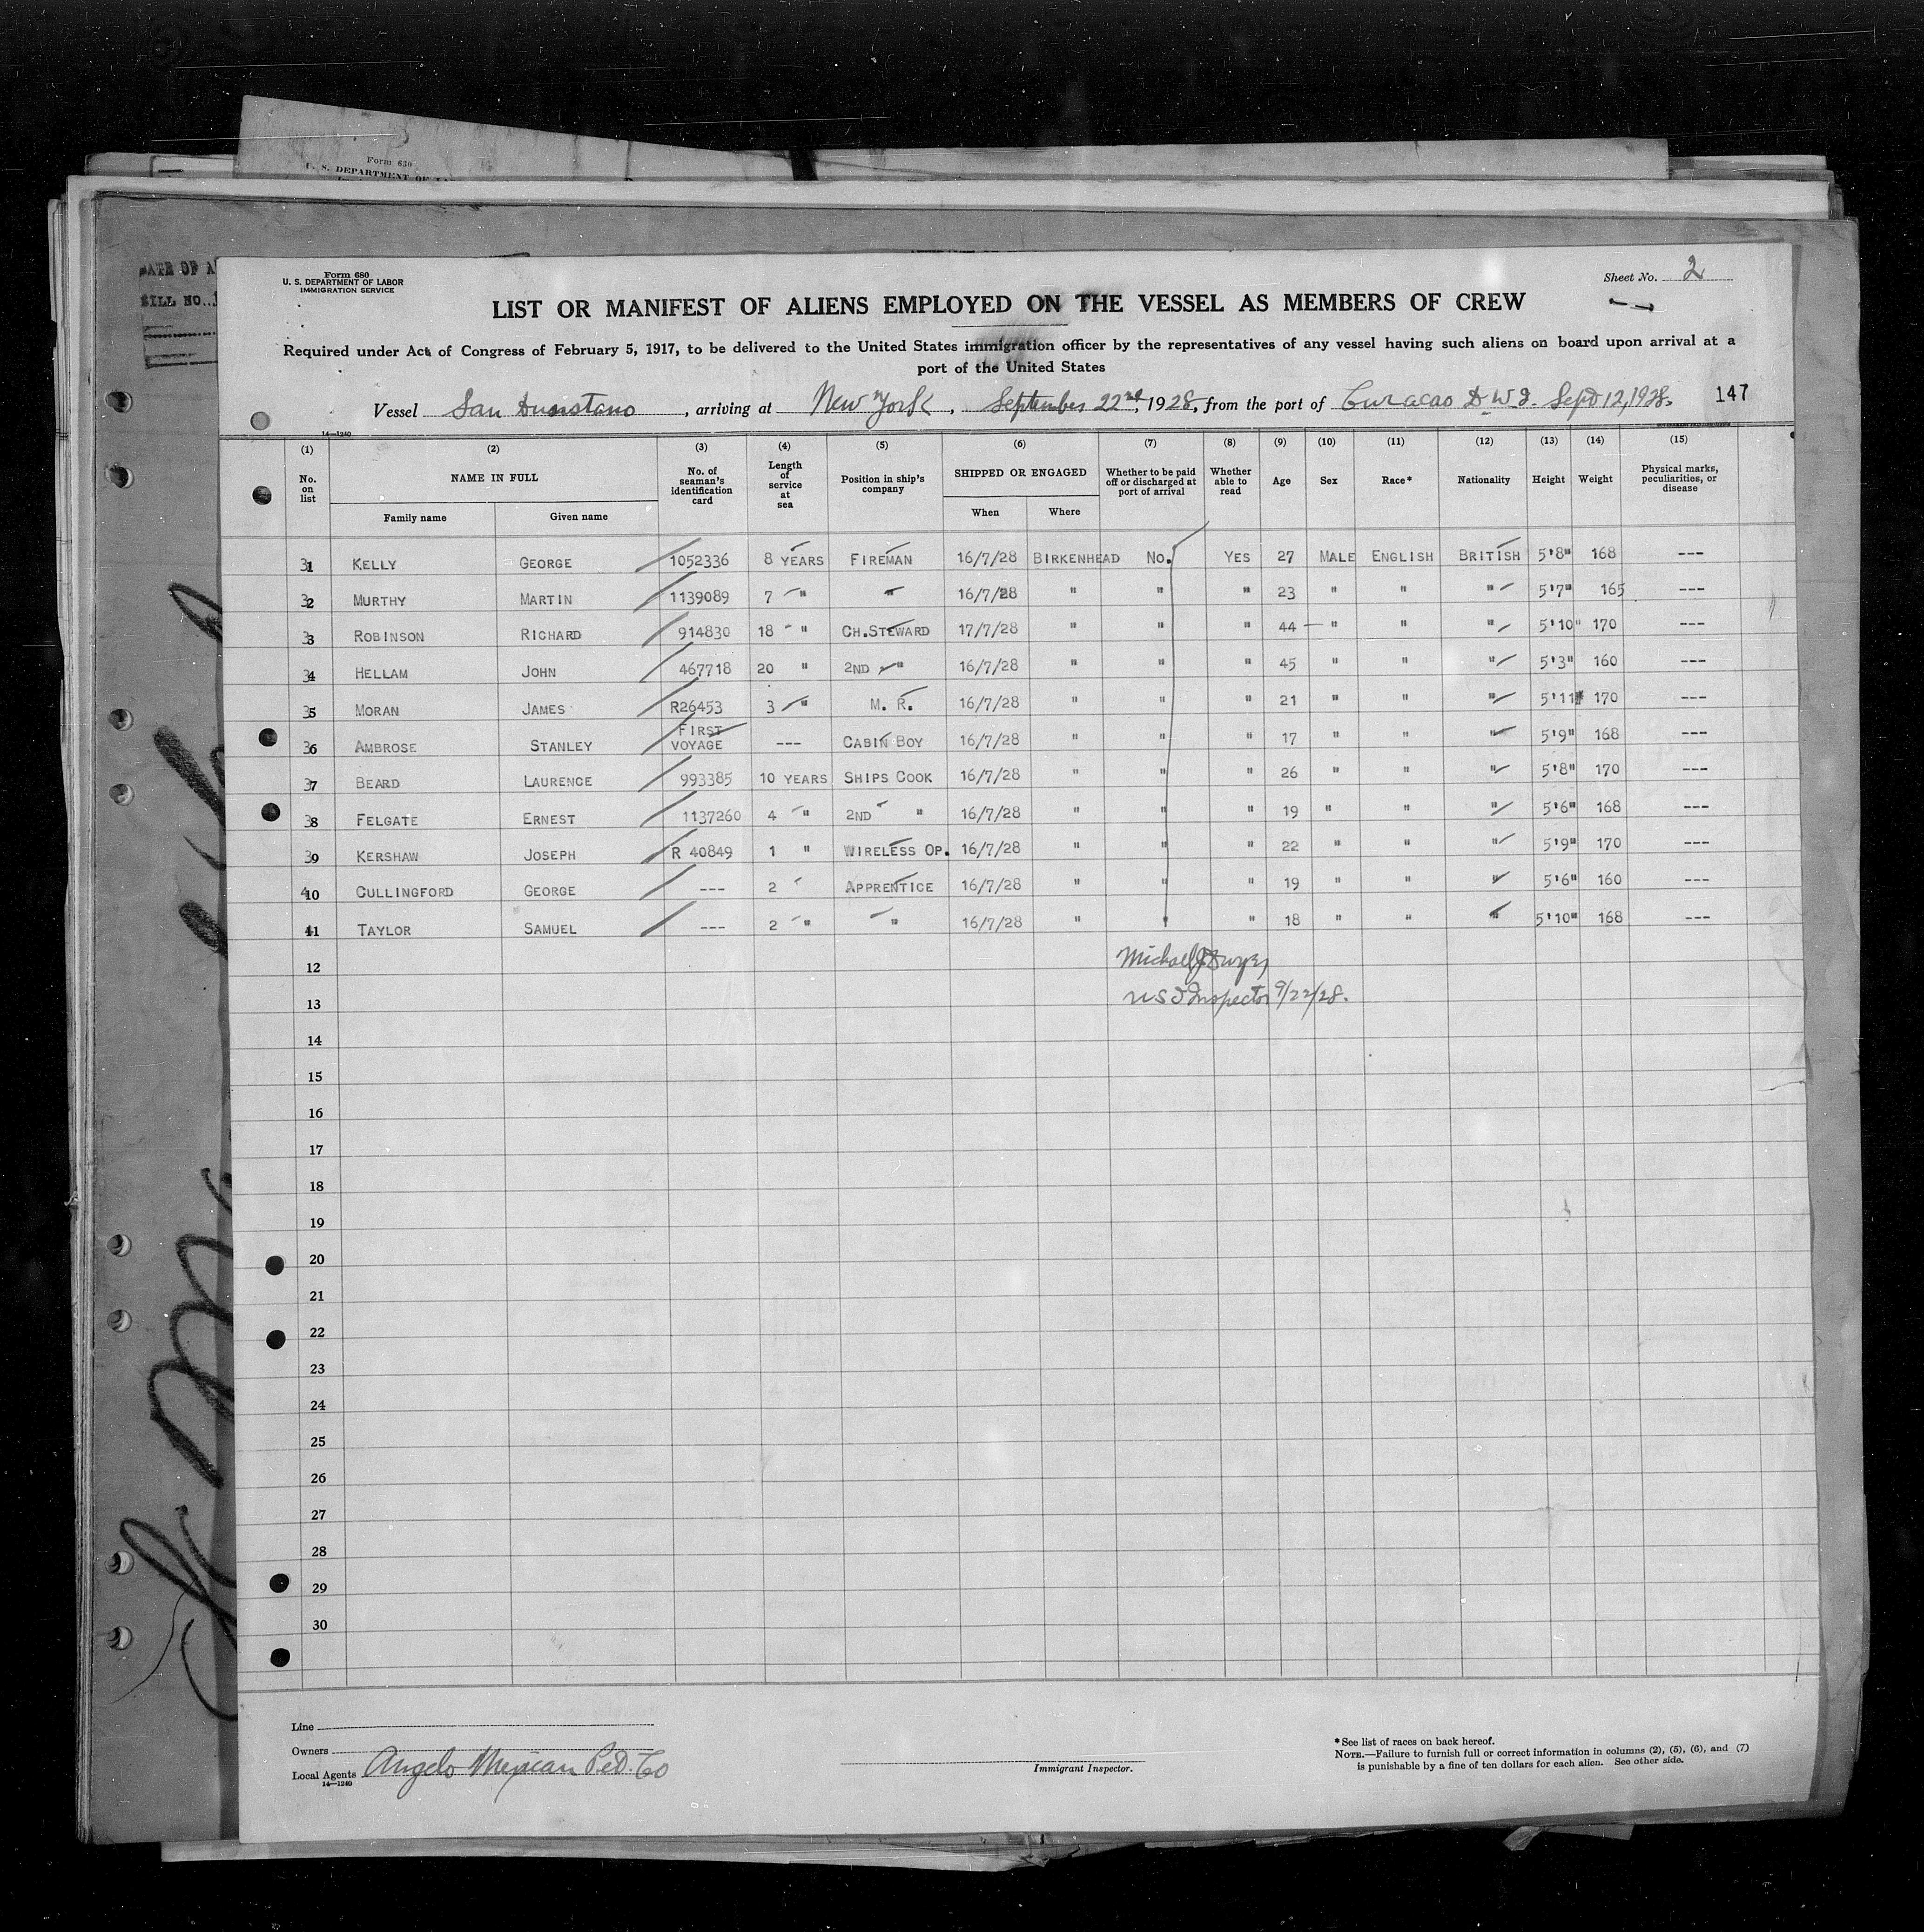 Form 630
U. S. DEPARTMENT OF
DATE OF A
BILL NO.
Form 680
U. S. DEPARTMENT OF LABOR
IMMIGRATION SERVICE
Sheet No. 2
LIST OR MANIFEST OF ALIENS EMPLOYED ON THE VESSEL AS MEMBERS OF CREW
Required under Act of Congress of February 5, 1917, to be delivered to the United States immigration officer by the representatives of any vessel having such aliens on board upon arrival at a
port of the United States
Vessel San Dunstano, arriving at New York, September 22nd, 1928, from the port of Curacao D.W.I. Sept 12, 1928. 147
14—1240
(1) (2) (3) (4) (5) (6) (7) (8) (9) (10) (11) (12) (13) (14) (15)
No. on list NAME IN FULL No. of seaman's identification card Length of service at sea Position in ship's company SHIPPED OR ENGAGED Whether to be paid off or discharged at port of arrival Whether able to read Age Sex Race* Nationality Height Weight Physical marks, peculiarities, or disease
Family name Given name When Where
31 KELLY GEORGE 1052336 8 YEARS FIREMAN 16/7/28 BIRKENHEAD No. YES 27 MALE ENGLISH BRITISH 5'8" 168 ---
32 MURTHY MARTIN 1139089 7 " " 16/7/28 " " " 23 " " " 5'7" 165 ---
33 ROBINSON RICHARD 914830 18 " CH.STEWARD 17/7/28 " " " 44 " " " 5'10" 170 ---
34 HELLAM JOHN 467718 20 " 2ND " 16/7/28 " " " 45 " " " 5'3" 160 ---
35 MORAN JAMES R26453 3 " M. R. 16/7/28 " " " 21 " " " 5'11" 170 ---
36 AMBROSE STANLEY FIRST VOYAGE --- CABIN BOY 16/7/28 " " " 17 " " " 5'9" 168 ---
37 BEARD LAURENCE 993385 10 YEARS SHIPS COOK 16/7/28 " " " 26 " " " 5'8" 170 ---
38 FELGATE ERNEST 1137260 4 " 2ND " 16/7/28 " " " 19 " " " 5'6" 168 ---
39 KERSHAW JOSEPH R 40849 1 " WIRELESS OP. 16/7/28 " " " 22 " " " 5'9" 170 ---
40 CULLINGFORD GEORGE --- 2 " APPRENTICE 16/7/28 " " " 19 " " " 5'6" 160 ---
41 TAYLOR SAMUEL --- 2 " " 16/7/28 " " " 18 " " " 5'10" 168 ---
12 Michael J Dwyer
13 US I Inspector 9/22/28.
14
15
16
17
18
19
20
21
22
23
24
25
26
27
28
29
30
Line
Owners
Local Agents Angelo Mexican Pet. Co
14—1240
Immigrant Inspector.
*See list of races on back hereof.
NOTE.—Failure to furnish full or correct information in columns (2), (5), (6), and (7)
is punishable by a fine of ten dollars for each alien. See other side.